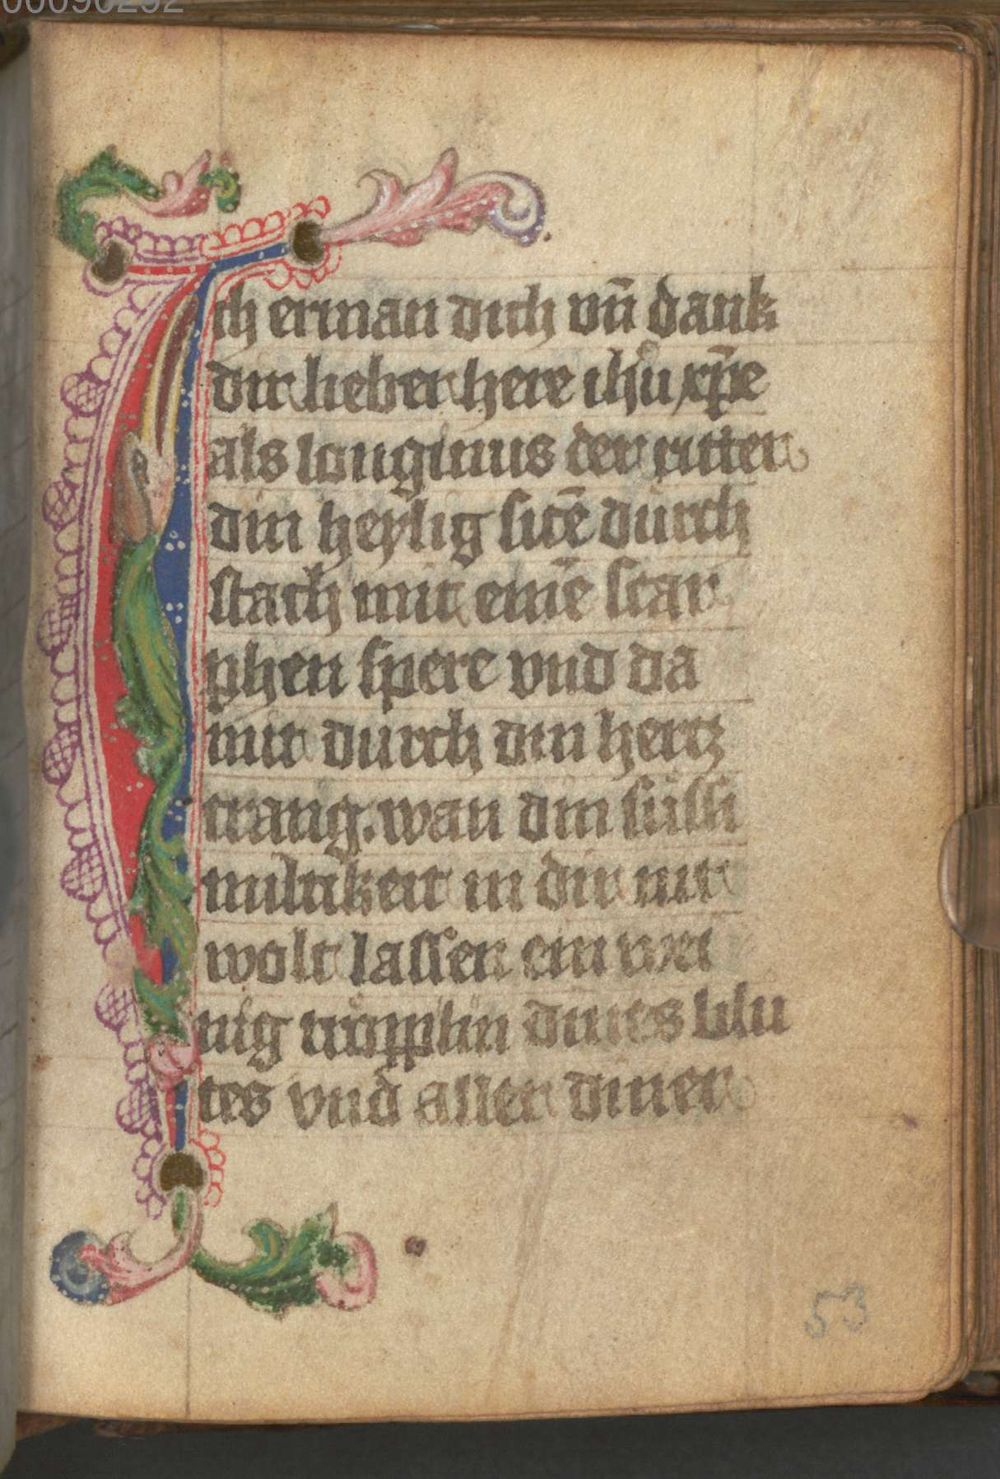 00090292
Ich erman dich vn̄ dank
dir lieber here ihū xp̄e
als longinus der ritter
din heylig sitē durch
stach mit einē scar
phen spere vnd da
mit durch din hertz
trang. wan din süssi
miltikeit in dir nit
wolt lassen ein wei
nig tröpplin dines blů
tes vnd aller diner
53